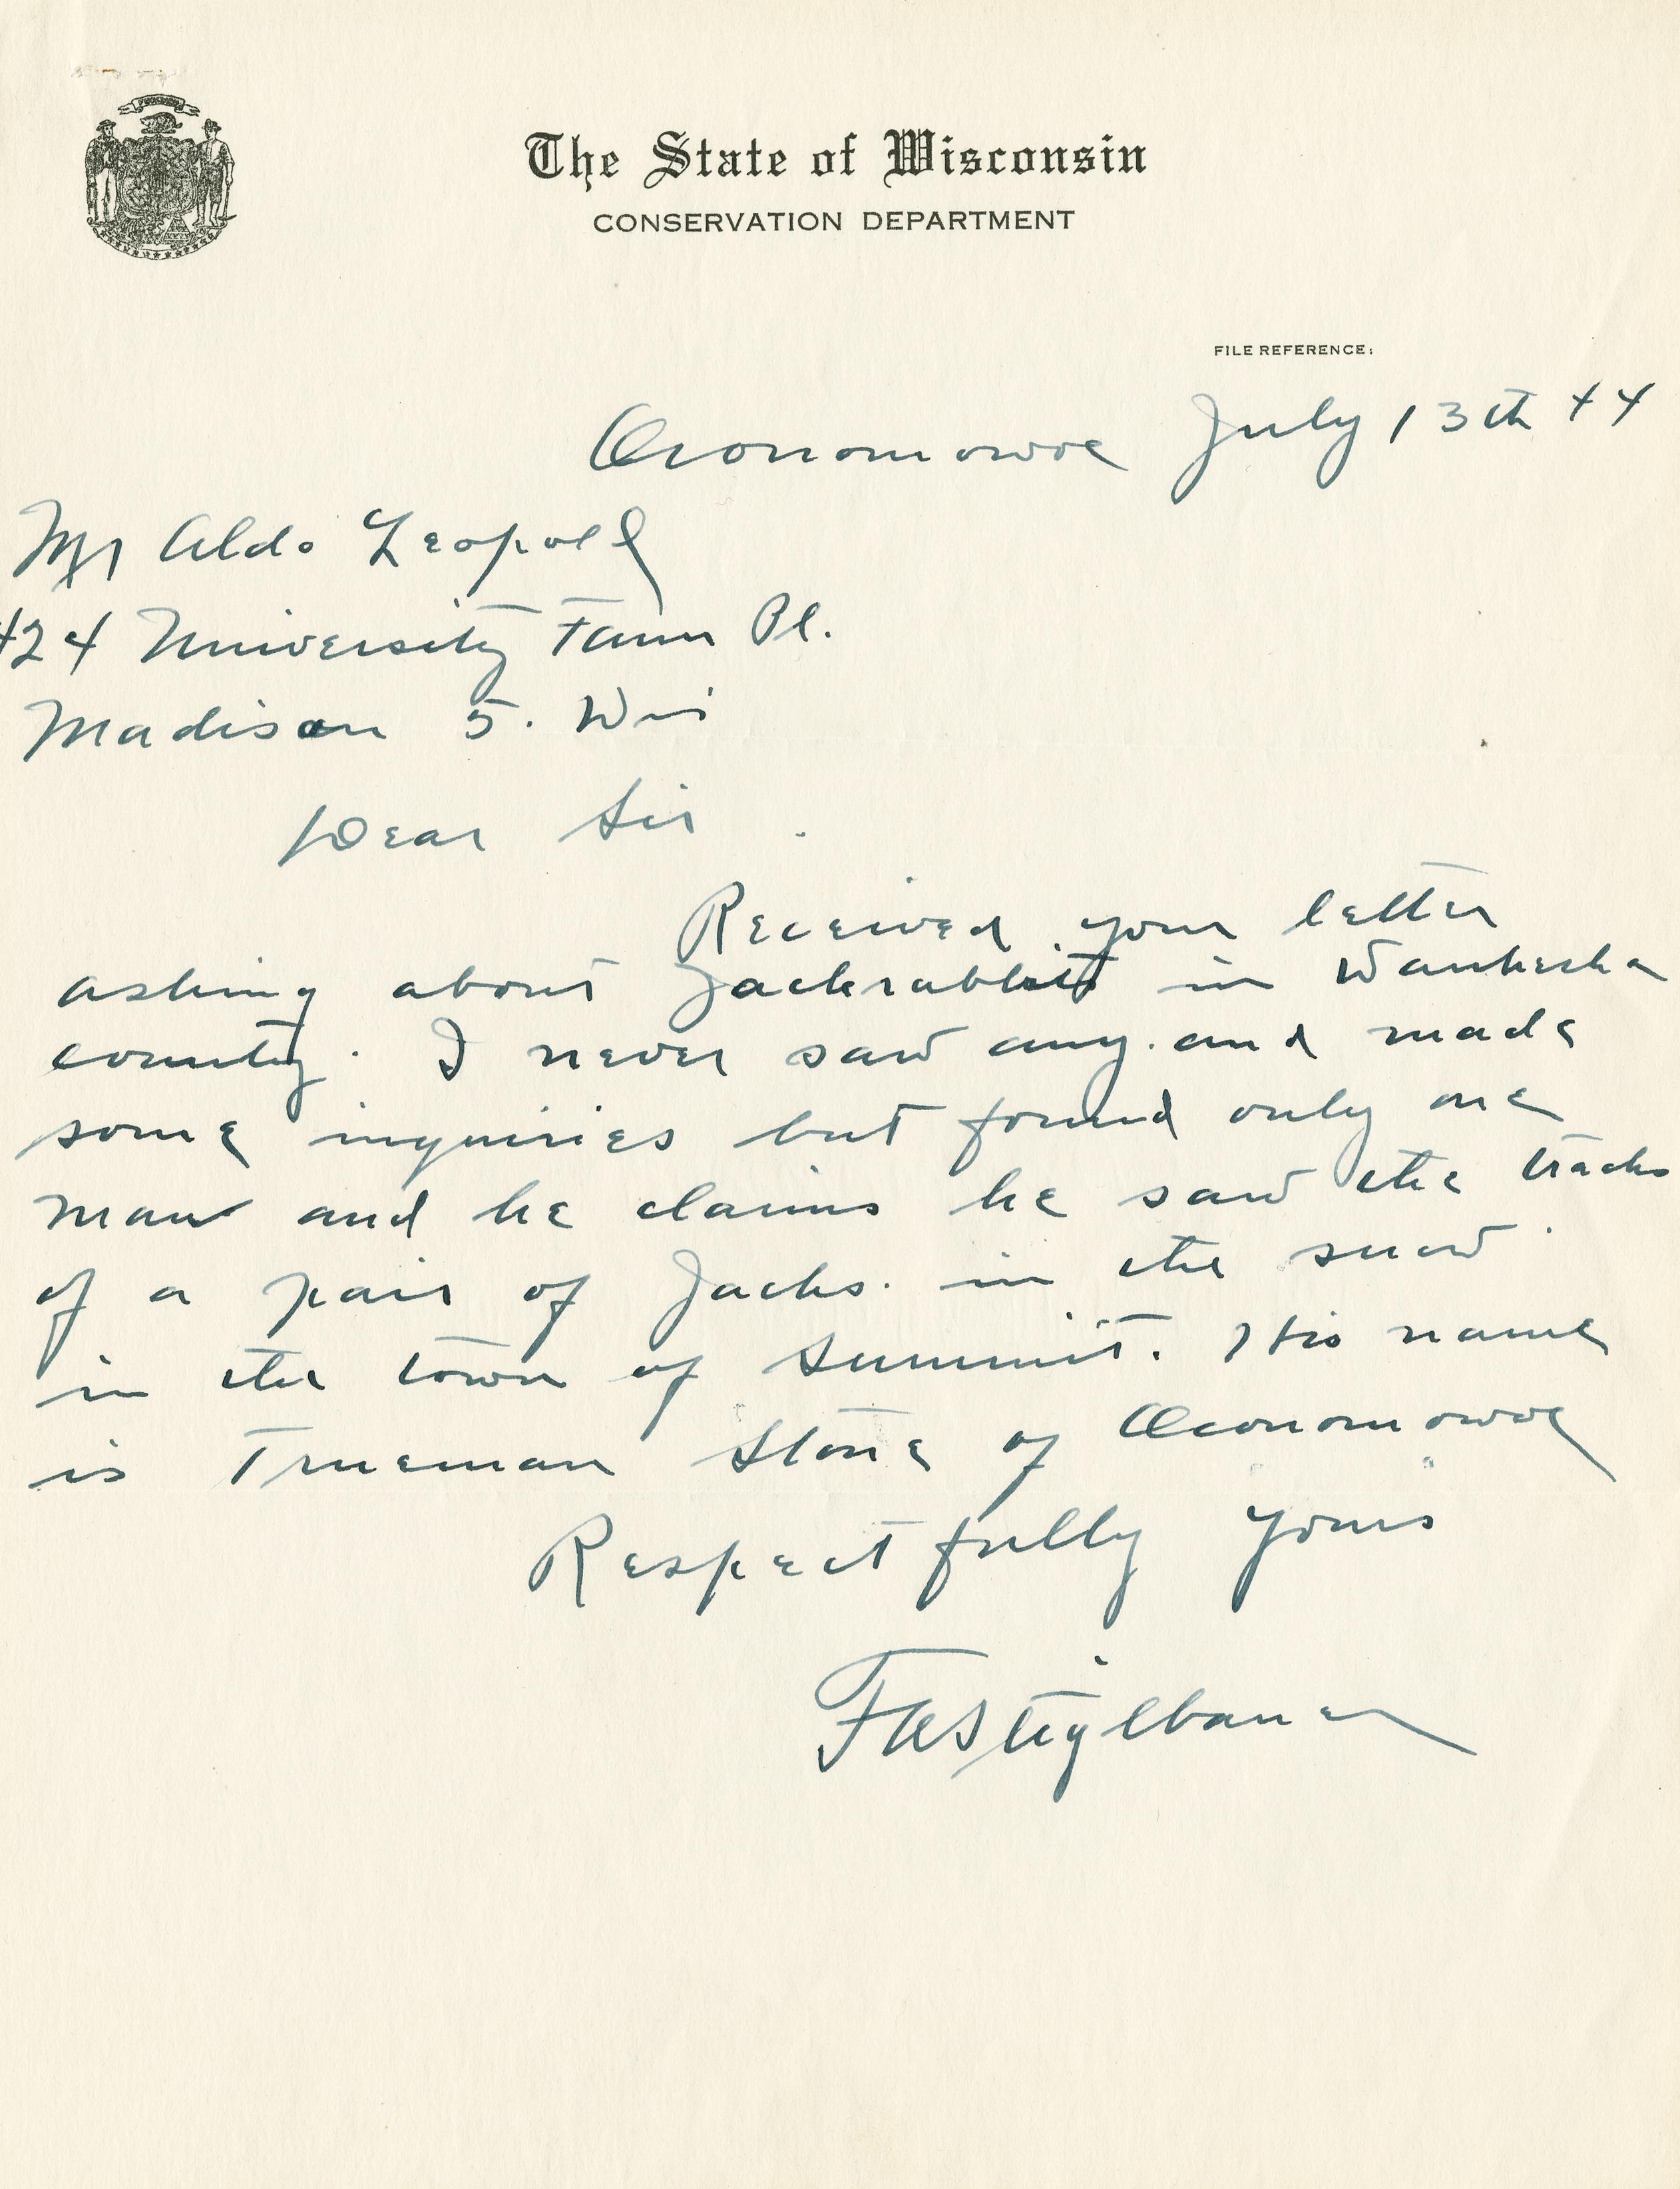 The State of Wisconsin
CONSERVATION DEPARTMENT
FILE REFERENCE:
Oconomowoc July 13th 44
Mr Aldo Leopold
424 University Farm Pl.
Madison 5. Wis
Dear Sir.
Received your letter
asking about Jackrabbits in Waukesha
county. I never saw any. and made
some inquiries but found only one
man and he claims he saw the tracks
of a pair of Jacks. in the snow.
in the town of Summit. His name
is Trueman Stone of Oconomowoc
Respectfully yours